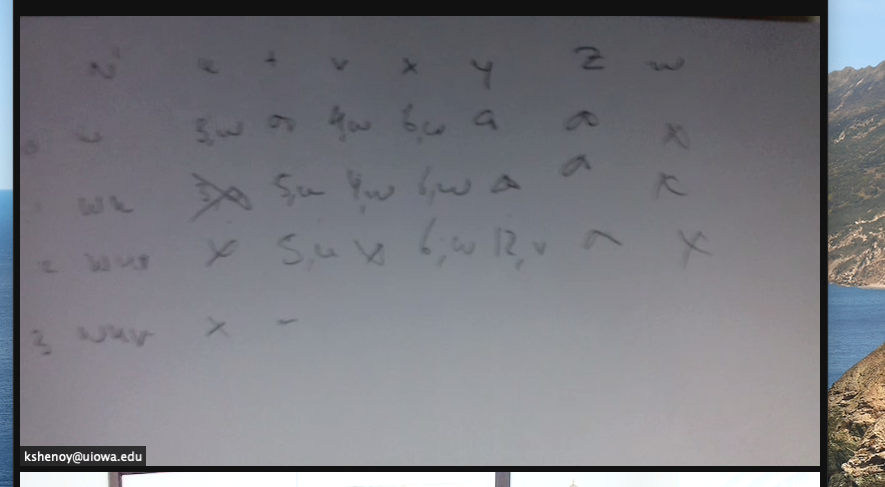 N' u t v x y z w
0 w 3,w ∞ 4,w 6,w ∞ ∞ x
1 wu 3,w 5,u 4,w 6,w ∞ ∞ x
2 wuv x 5,u x 6,w 12,v ∞ x
3 wuv x -
kshenoy@uiowa.edu